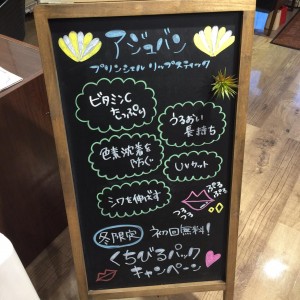 アジュバン
プリンシャル リップスティック
ビタミンC
たっぷり
うるおい
長持ち
色素沈着を
防ぐ
UVカット
シワを伸ばす
ぷる
ぷる
つる
つる
冬限定 初回無料!
くちびるパック
キャンペーン